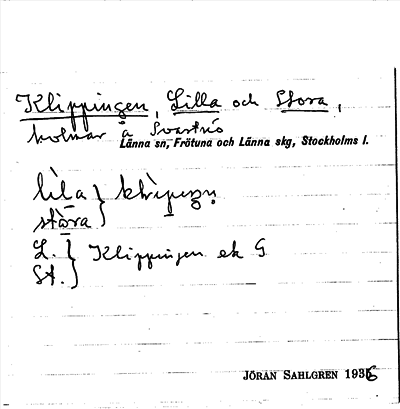 Klippingen, Lilla och Stora,
holmar å Svartnö
Länna sn, Frötuna och Länna skg, Stockholms l.
lìla } 
stòra
L. } Klippingen ek G
St.
JÖRAN SAHLGREN 1936